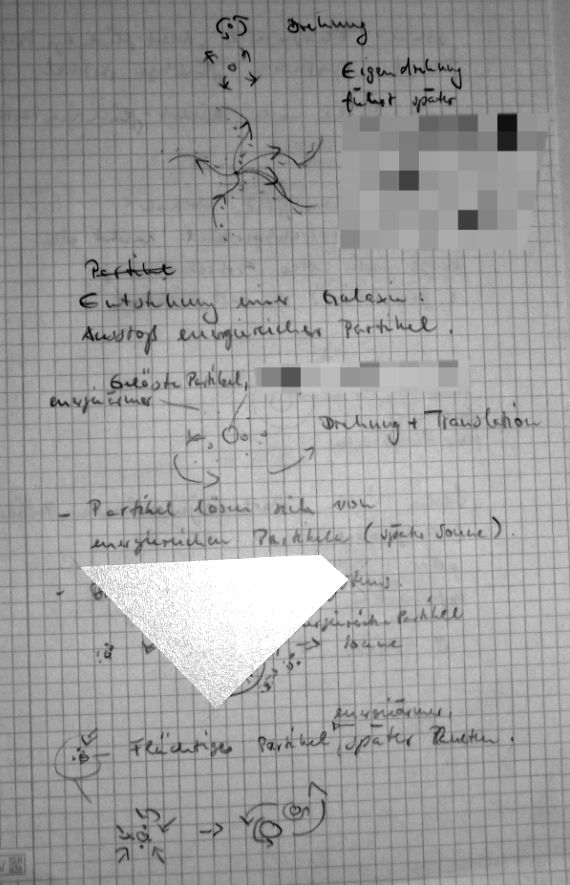 Drehung
Eigendrehung
führt später
Partikel
Entstehung einer Galaxie:
Ausstoß energiereicher Partikel.
Gelöste Partikel,
energieärmer
Drehung + Translation
- Partikel lösen sich von
energiereichen Partikeln (später Sonne).
-
energiereiche Partikel
Sonne
energieärmer,
Flüchtiges Partikel, später